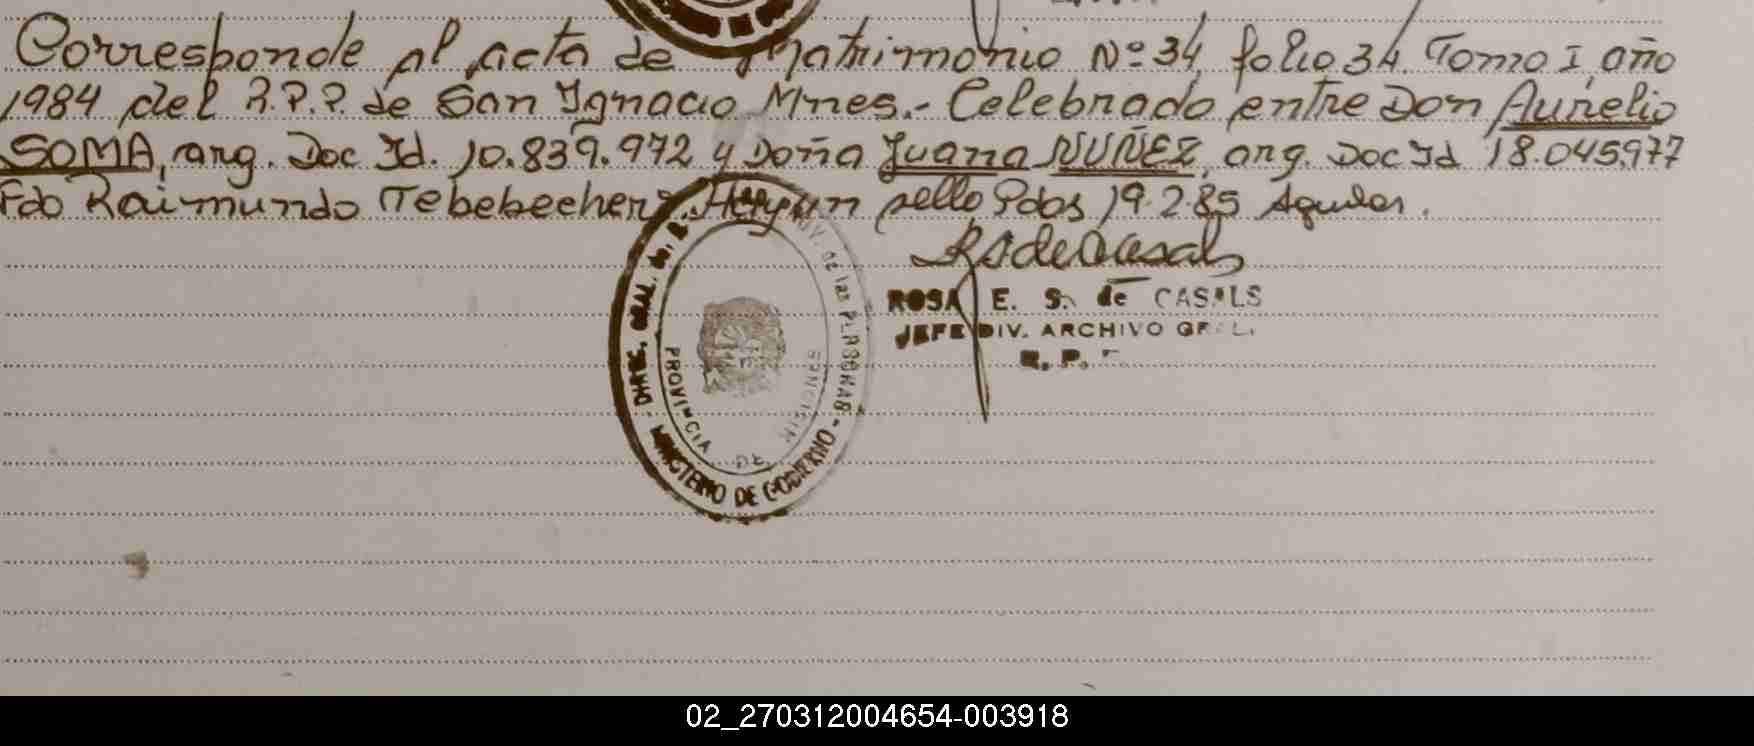 Corresponde al acta de Matrimonio Nº 34 folio 34. Tomo I, año
1984 del R.P.P. de San Ignacio Mnes.- Celebrado entre Don Aurelio
SOMA, arg. Doc Id. 10.839.972 y Doña Juana NUÑEZ, arg. Doc Id 18.045.977
Fdo Raimundo sello Pdas 19.2.85 Aguilar.
ROSA E. S. de CASALS
JEFE DIV. ARCHIVO GRAL.
R. P.
DIREC. GRAL. de las PERSONAS - MINISTERIO DE GOBIERNO -
PROVINCIA DE
02_270312004654-003918